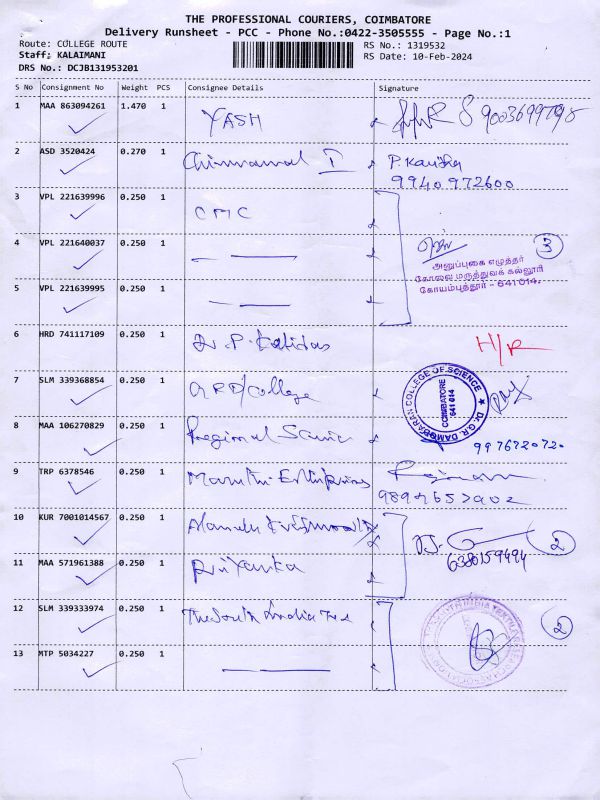 THE PROFESSIONAL COURIERS, COIMBATORE
Delivery Runsheet - PCC - Phone No.:0422-3505555 - Page No.:1
Route: COLLEGE ROUTE
Staff: KALAIMANI
DRS No.: DCJB131953201
RS No.: 1319532
RS Date: 10-Feb-2024
S No Consignment No Weight PCS Consignee Details Signature
1 MAA 863094261 1.470 1 YASH
2 ASD 3520424 0.270 1 P. Kavitha
9940972600
3 VPL 221639996 0.250 1 CMC
4 VPL 221640037 0.250 1 3
அனுப்புகை எழுத்தர்
கோவை மருத்துவக் கல்லூரி
கோயம்புத்தூர் - 641 014.
5 VPL 221639995 0.250 1
6 HRD 741117109 0.250 1 Dr. P. Kalidas H/R
7 SLM 339368854 0.250 1 GRD/College
Dr. G.R. DAMODARAN COLLEGE OF SCIENCE
COIMBATORE
641 014
8 MAA 106270829 0.250 1 Regional Science
9 TRP 6378546 0.250 1 Maruthi Enterprises
10 KUR 7001014567 0.250 1 2
6380159494
11 MAA 571961388 0.250 1 Priyanka
12 SLM 339333974 0.250 1 The South India Tex 2
13 MTP 5034227 0.250 1